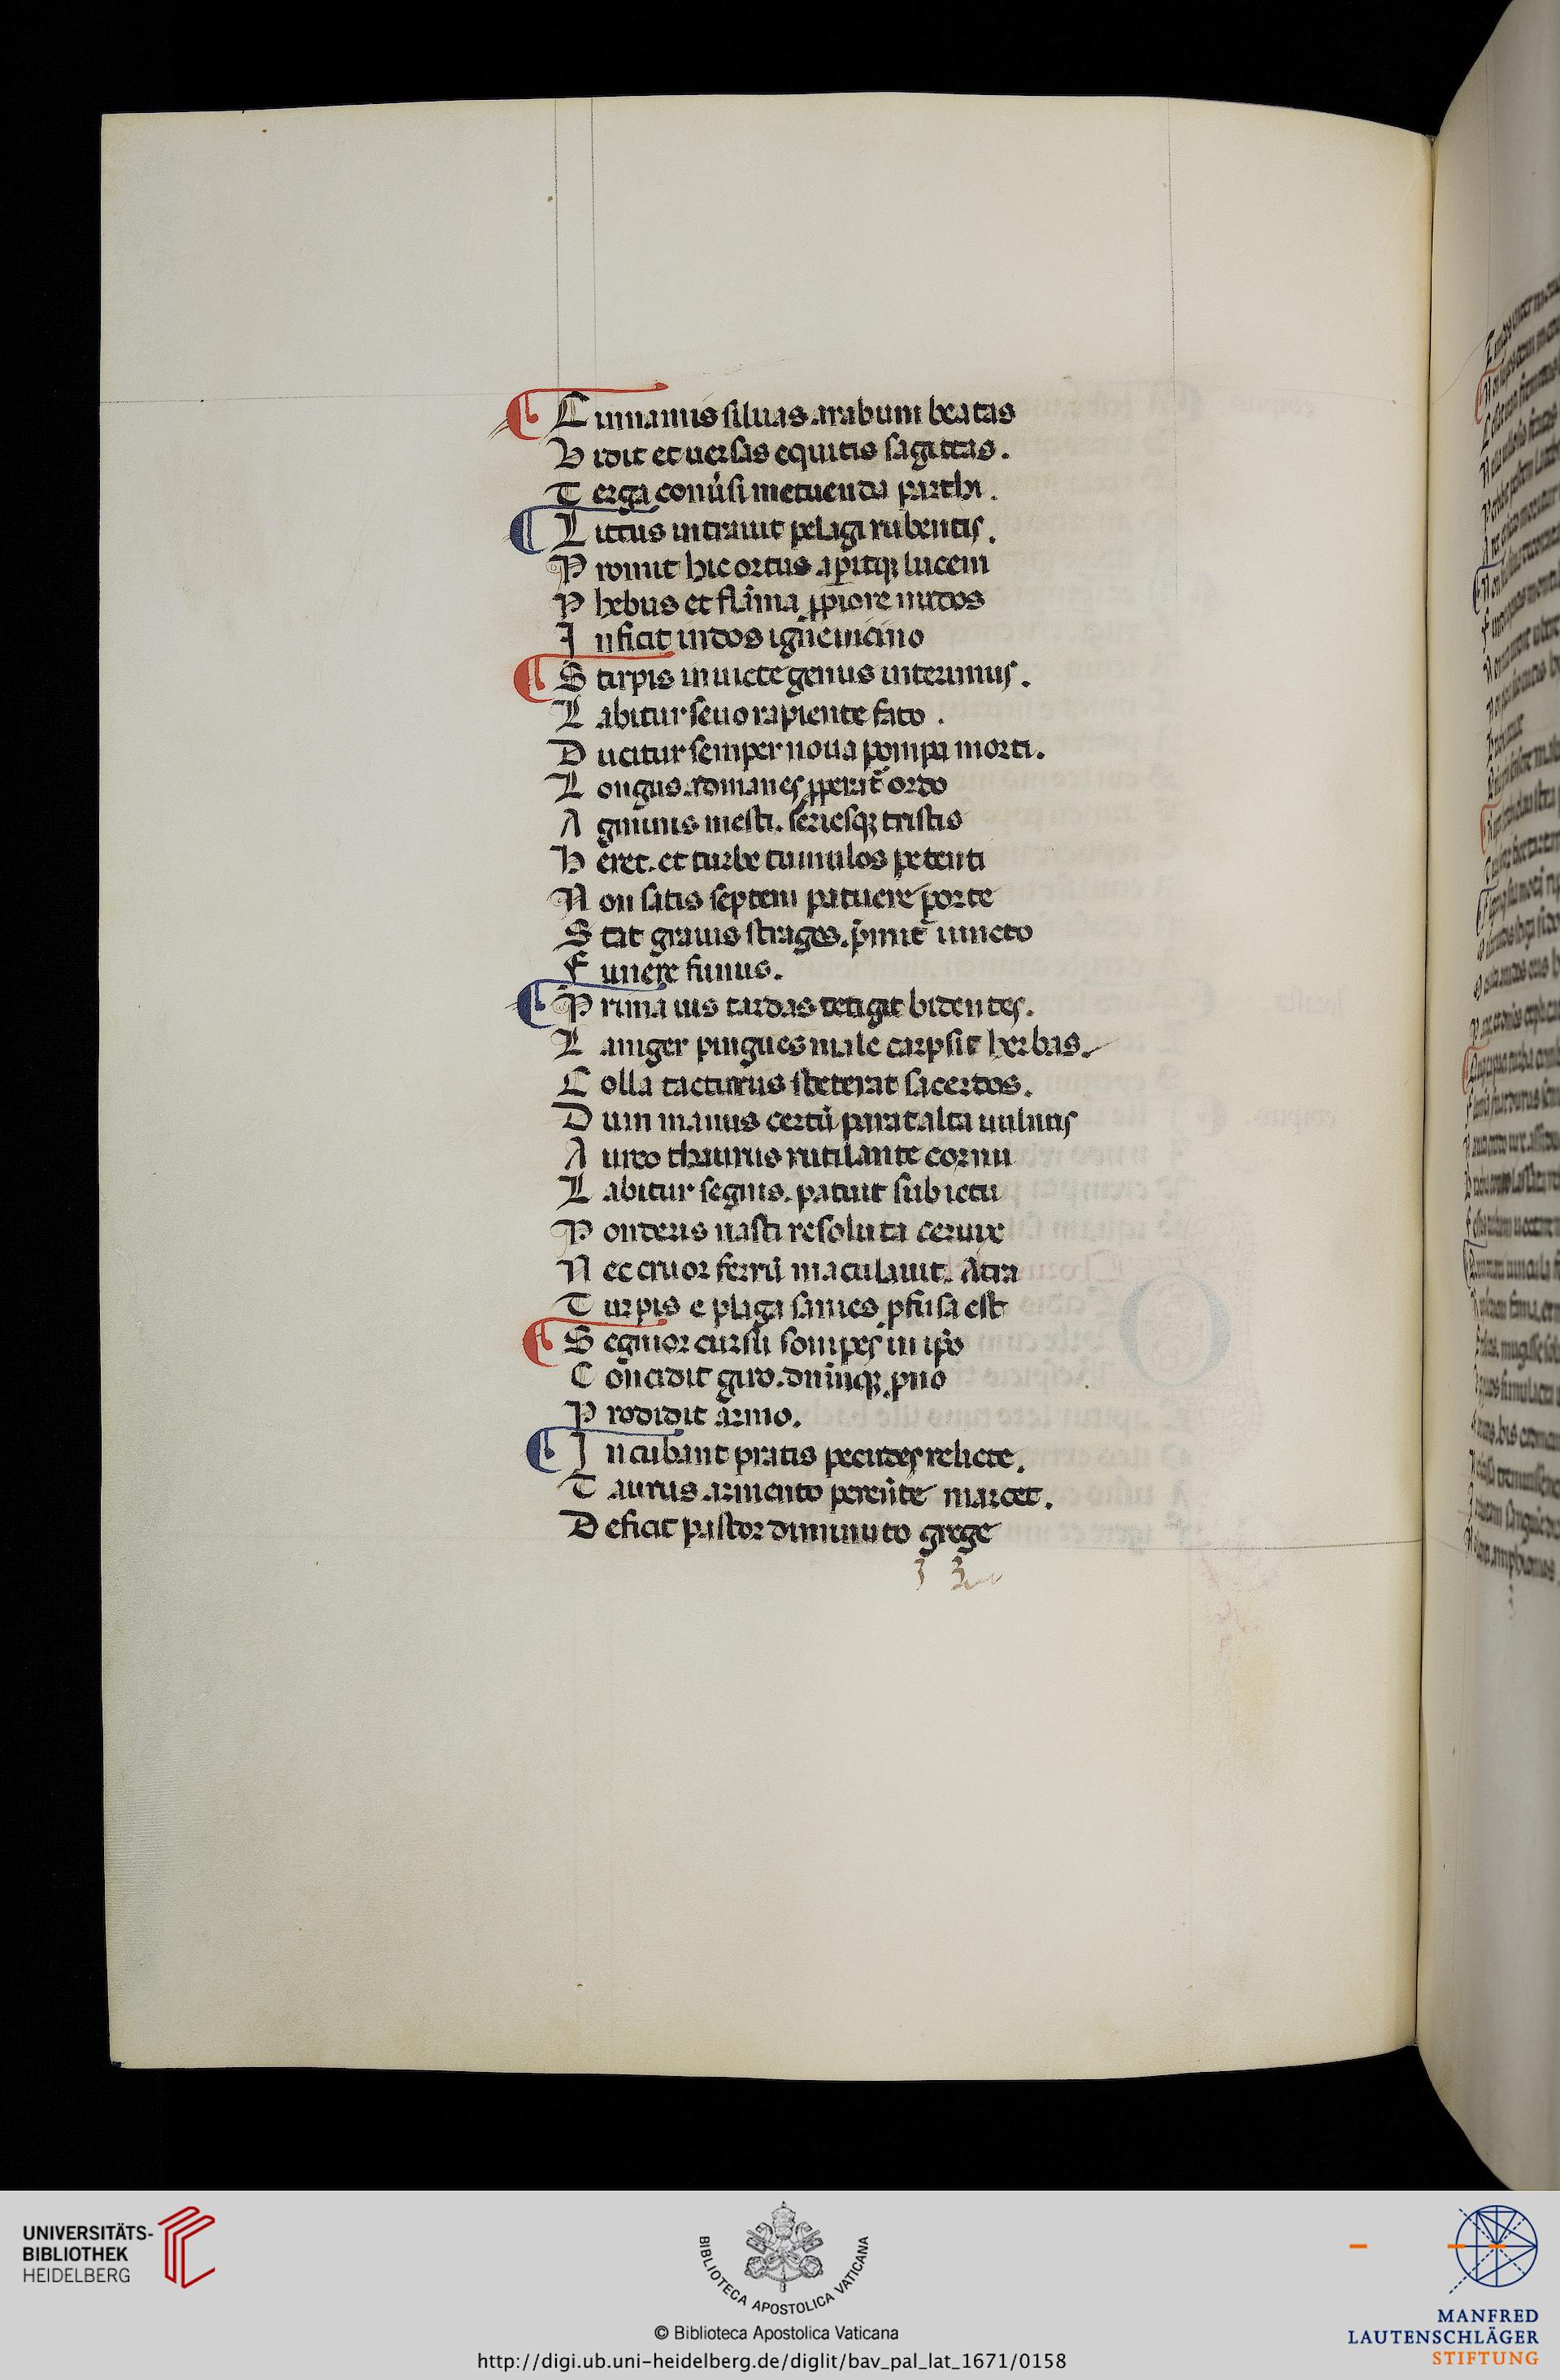 Cinnamis siluas arabum beatas
Vidit et uersas equitis sagittas.
Terga conu̇si metuenda parthi.
Littus intrauit pelagi rubentis.
Promit hic ortus aꝑitqꝫ lucem
Phebus et flāma ꝓpiore nudos
Inficit indos igne uicino
Stirpis inuicte genus interimus.
Labitur seuo rapiente fato.
Ducitur semper noua pompa morti.
Longus admanes ꝓperat̉ ordo
Agminis mesti. seriesqꝫ tristis
Heret. et turbe tumulos petenti
Non satis septem patuere porte
Stat grauis strages. p̄mit̉ iuncto
Funere funus.
Prima uis tardas tetigit bidentes.
Laniger pingues male carpsit herbas.
Colla tacturus steterat sacerdos.
Dum manus certū parat alta uulnus
Aureo thaurus rutilante cornu
Labitur segnis. patuit sub ictu
Ponderis uasti resoluta ceruix
Nec cruor ferrū maculauit. Atra
Turpis e plaga sanies ꝓfusa est
Segnior cursu sonipes in ip̄o
Concidit giro. dn̄inqꝫ ꝓno
Prodidit armo.
Incubant pratis pecudes relicte.
Taurus armento pereūte marcet.
Deficit pastor diminuto grege
UNIVERSITÄTS-
BIBLIOTHEK
HEIDELBERG
BIBLIOTECA APOSTOLICA VATICANA
© Biblioteca Apostolica Vaticana
http://digi.ub.uni-heidelberg.de/diglit/bav_pal_lat_1671/0158
MANFRED
LAUTENSCHLÄGER
STIFTUNG